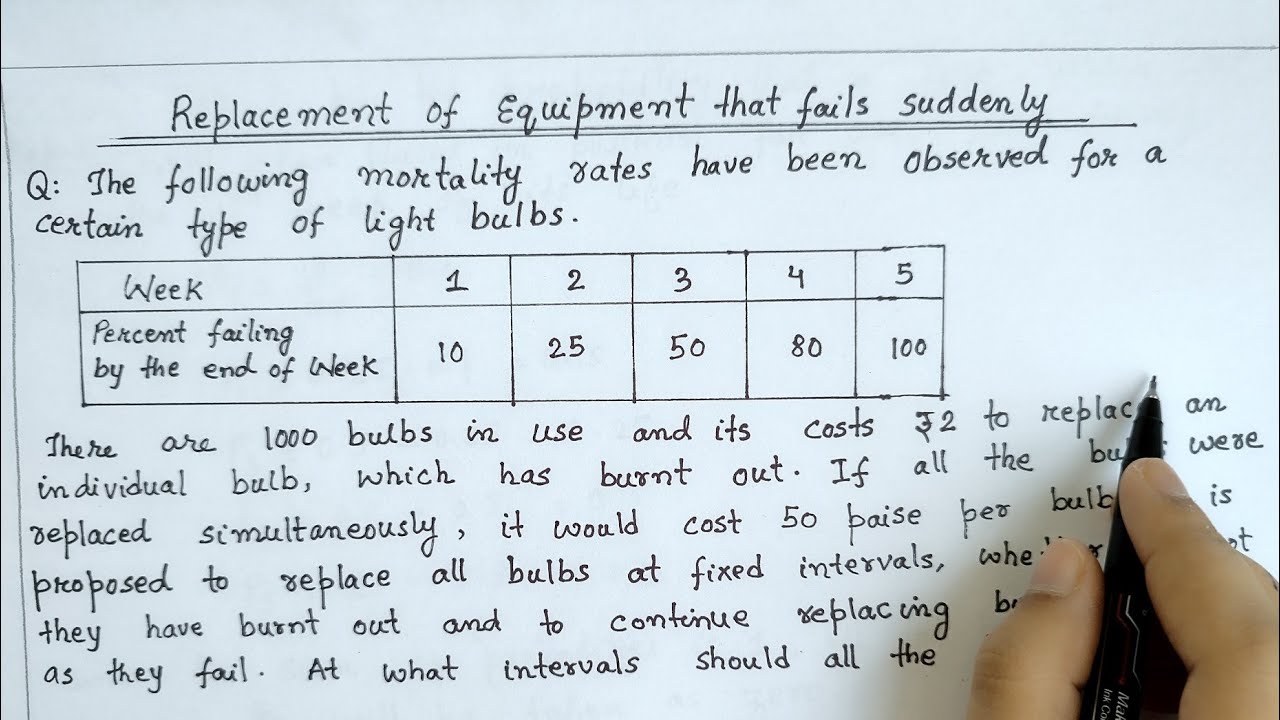 Replacement of Equipment that fails suddenly
Q: The following mortality rates have been observed for a
certain type of light bulbs.
Week 1 2 3 4 5
Percent failing by the end of Week 10 25 50 80 100
There are 1000 bulbs in use and its costs ₹2 to replac an
individual bulb, which has burnt out. If all the were
replaced simultaneously, it would cost 50 paise per bulb is
proposed to replace all bulbs at fixed intervals,
they have burnt out and to continue replacing
as they fail. At what intervals should all the